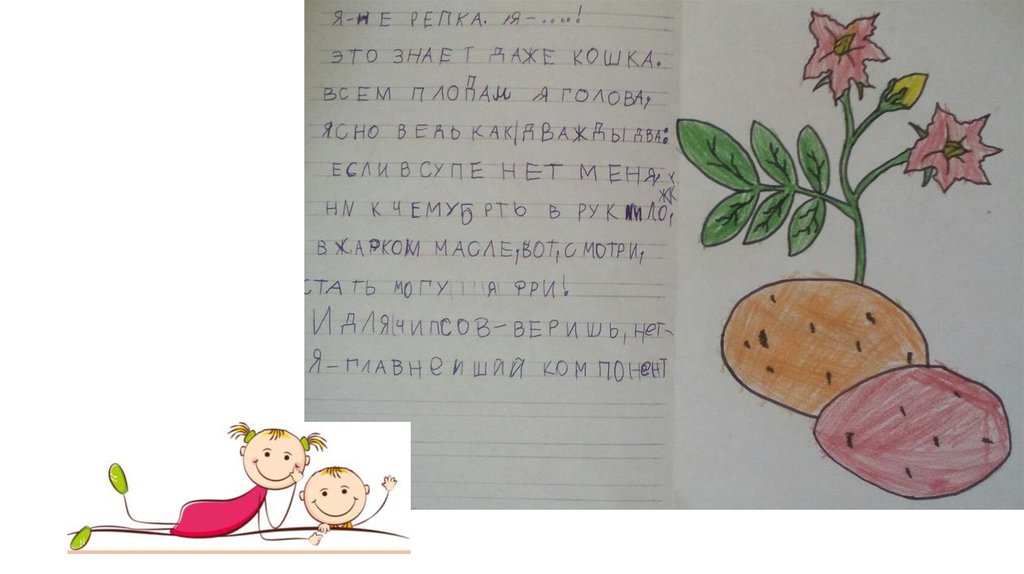 Я-НЕ РЕПКА. Я-....!
ЭТО ЗНАЕТ ДАЖЕ КОШКА.
ВСЕМ ПЛОДАМ Я ГОЛОВА,
ЯСНО ВЕДЬ КАК ДВАЖДЫ ДВА:
ЕСЛИ В СУПЕ НЕТ МЕНЯ,
НИ К ЧЕМУ БРТЬ В РУК ЛО,
В ЖАРКОМ МАСЛЕ, ВОТ, СМОТРИ,
СТАТЬ МОГУ Я ФРИ!
И ДЛЯ ЧИПСОВ-ВЕРИШЬ, НЕТ-
Я-ГЛАВНЕИШИЙ КОМПОНЕНТ